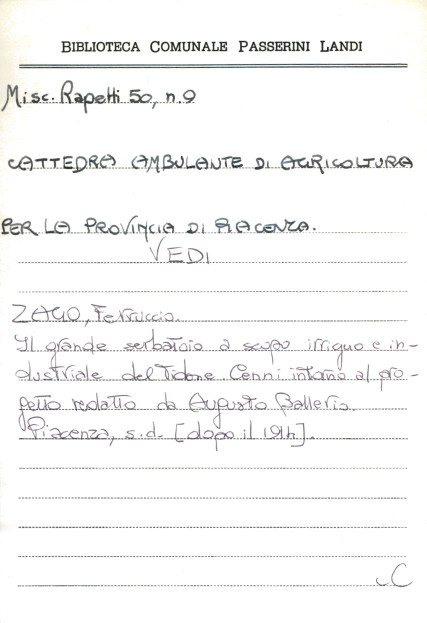 BIBLIOTECA COMUNALE PASSERINI LANDI
Misc. Rapetti 50, n.9
CATTEDRA AMBULANTE DI AGRICOLTURA
PER LA PROVINCIA DI PIACENZA.
VEDI
ZAGO, Ferruccio.
Il grande serbatoio a scopo irriguo e in-
dustriale del Tidone Cenni intorno al pro-
getto redatto da Augusto Ballerio.
Piacenza, s.d. [dopo il 1914].